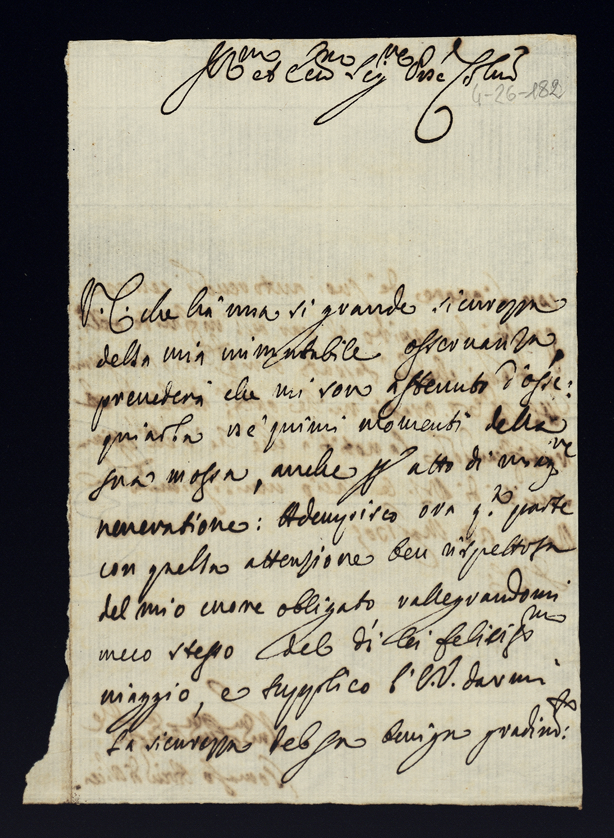 Ill.mo et Ecc.mo Sig.re P.ne Col.mo
4-26-182
V. E. che hà una si grande sicurezza
della mia immutabile osseruanza,
preuederà che mi son astenuto d'osse:
quiarla ne' primi momenti della
sua mossa, anche per atto di mag.re
ueneratione: Adempisco ora q.ta parte
con quella attenzione ben rispettosa
del mio cuore obligato rallegrandomi
meco stesso del di lei felicis.mo
uiaggio, e supplico l'E.V. darmi
la sicurezza del suo benigno gradim.to: